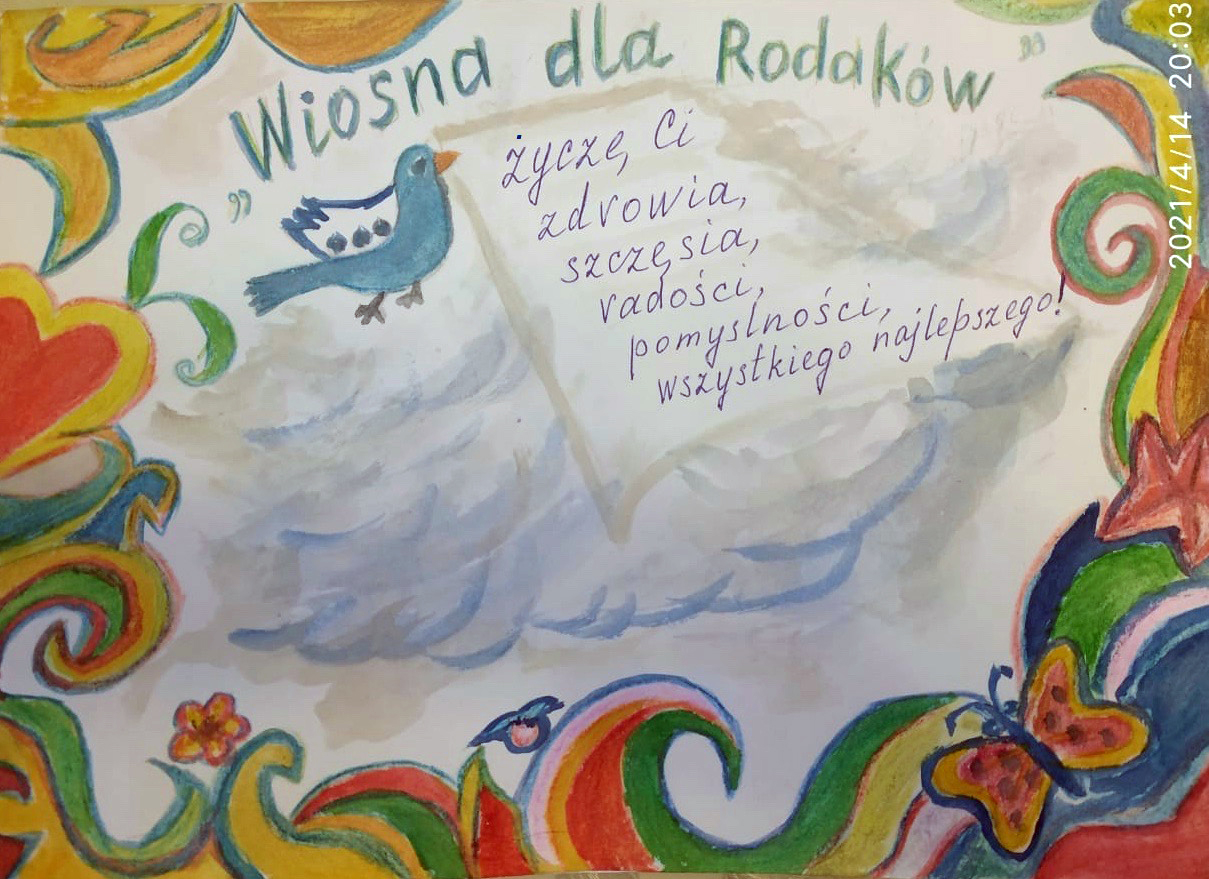 „Wiosna dla Rodaków”
życzę Ci
zdrowia,
szczęsia,
radości,
pomyslności,
wszystkiego najlepszego!
2021/4/14 20:03